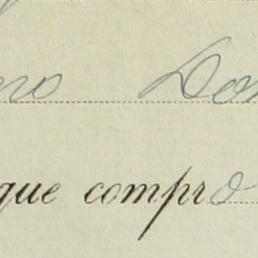 no Don
que compro